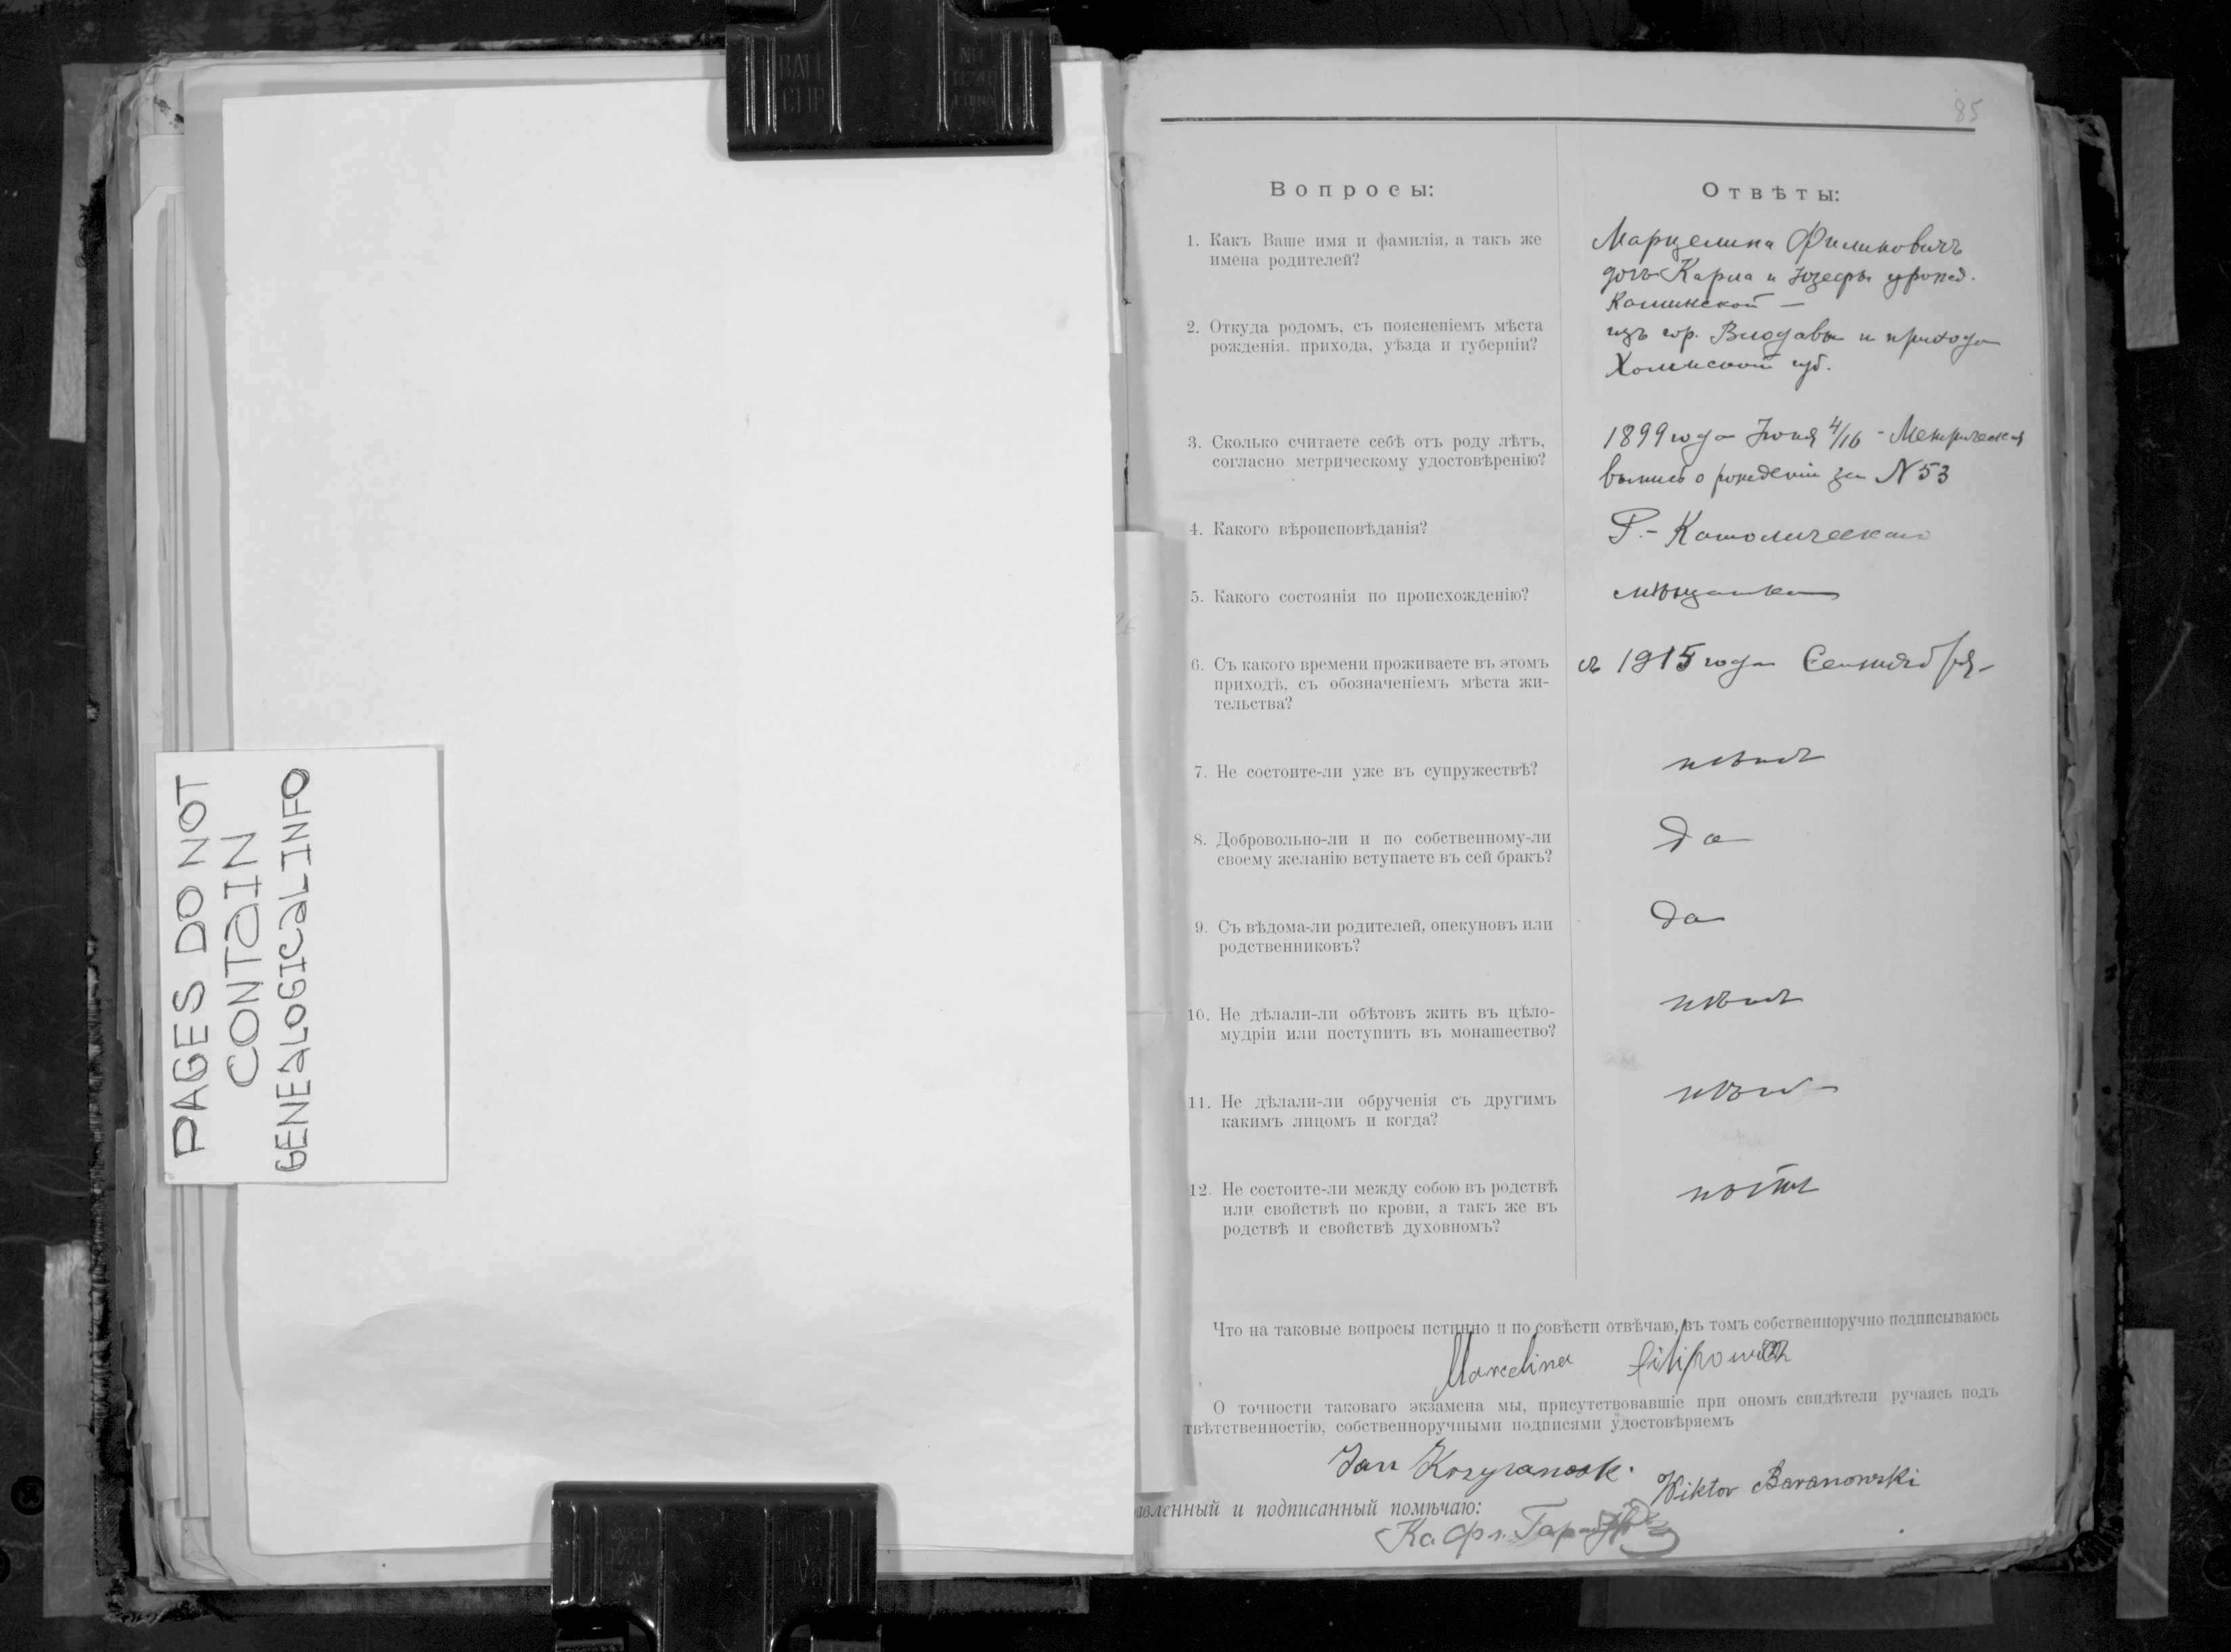 PAGES DO NOT
CONTAIN
GENEALOGICAL INFO
85
Вопросы:
Отвѣты:
1. Какъ Ваше имя и фамилія, а такъ же
имена родителей?
Марцелина Филиповичъ
дочь Карла и Юзефы урожд.
2. Откуда родомъ, съ поясненіемъ мѣста
рожденія, прихода, уѣзда и губерніи?
изъ гор. Влодавы и прихода
Холмской губ.
3. Сколько считаете себѣ отъ роду лѣтъ,
согласно метрическому удостовѣренію?
1899 года Іюня 4/16 - Метрическая
выпись о рожденіи за N 53
4. Какого вѣроисповѣданія?
Р.-Католическаго
5. Какого состоянія по происхожденію?
мѣщанка
6. Съ какого времени проживаете въ этомъ
приходѣ, съ обозначеніемъ мѣста жи-
тельства?
съ 1915 года Сентября
7. Не состоите-ли уже въ супружествѣ?
нѣтъ
8. Добровольно-ли и по собственному-ли
своему желанію вступаете въ сей бракъ?
да
9. Съ вѣдома-ли родителей, опекуновъ или
родственниковъ?
да
10. Не дѣлали-ли обѣтовъ жить въ цѣло-
мудріи или поступить въ монашество?
нѣтъ
11. Не дѣлали-ли обрученія съ другимъ
какимъ лицомъ и когда?
нѣтъ
12. Не состоите-ли между собою въ родствѣ
или свойствѣ по крови, а такъ же въ
родствѣ и свойствѣ духовномъ?
нѣтъ
Что на таковые вопросы истинно и по совѣсти отвѣчаю, въ томъ собственноручно подписываюсь
Marcelina Filipowicz
О точности таковаго экзамена мы, присутствовавшіе при ономъ свидѣтели ручаясь подъ
твѣтственностію, собственноручными подписями удостовѣряемъ
Jan
Wiktor Baranowski
авленный и подписанный помѣчаю: